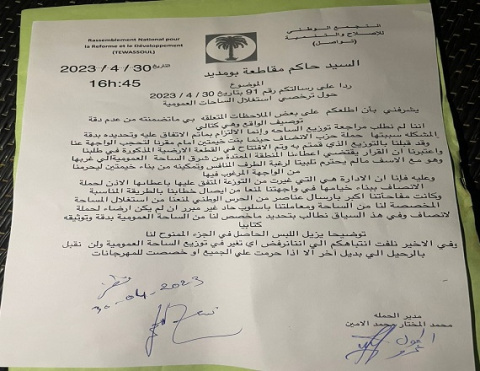 Rassemblement National pour
la Reforme et le Développement
(TEWASSOUL)
التجمع الوطني
للإصلاح والتنمية
(تواصل)
التاريخ 30 / 4 / 2023
16h:45
السيد حاكم مقاطعة بومديد
الموضوع
ردا على رسالتكم رقم 91 بتاريخ 30 / 4 / 2023
حول ترخصي استغلال الساحات العمومية
يشرفني بأن اطلعكم على بعض الملاحظات المتعلقه بي ماتضمنته من عدم دقة
توصيف الواقع وهي كتالي
اننا لم نطلب مراجعة توزيع الساحه وإنما الالتزام بماتم الاتفاق عليه وتحديده بدقة
المشكله سببتها حملة حزب الانصاف حينما بنت خيمتين امام مقرنا لتحجب الواجهة عنا
وقد قبلنا بالتوزيع الذي قمتم به وتم الافتتاح في القطعة الارضية المذكورة في طلبنا
واعتبرنا أن القرار يقتضي اعطائنا المنطقة الممتدة من شرق الساحة العمومية الي غربها
وهو مع الاسف مالم يحترم تلبيتا لرغبة الطرف المنافس وتمكينه من بناء خيمتين ليحرمنا
من الواجهة المرغوب فيها
وعليه فإننا ان الادارة هي التي غيرت من التوزعة المتفق عليها باعطائها الاذن لحملة
الانصاف ببناء خيامها في واجهتنا لمنعا من ايصال خطابنا بالطريقة المناسبة
وكانت مفاجأتنا اكبر بارسال عناصر من الحرس الوطني لمنعنا من استغلال المساحة
المخصصة لنا من الساحة ومعاملتنا باسلوب حاد غير مبرر ان لم يكن ارضاء لحملة
لانصاف وفي هذا السياق نطالب بتحديد ماخصص لنا من الساحة العمومية بدقة وتوثيقه
كتابيا
توضيحا يزيل اللبس الحاصل في الجزء الممنوح لنا
وفي الاخير نلفت انتباهكم الي اننانرفض اي تغير في توزيع الساحة العمومية ولن نقبل
بالرحيل الي بديل آخر الا اذا حرمت علي الجميع او خصصت للمهرجانات
30-04-2023
مدير الحمله
محمد المختار محمد الامين